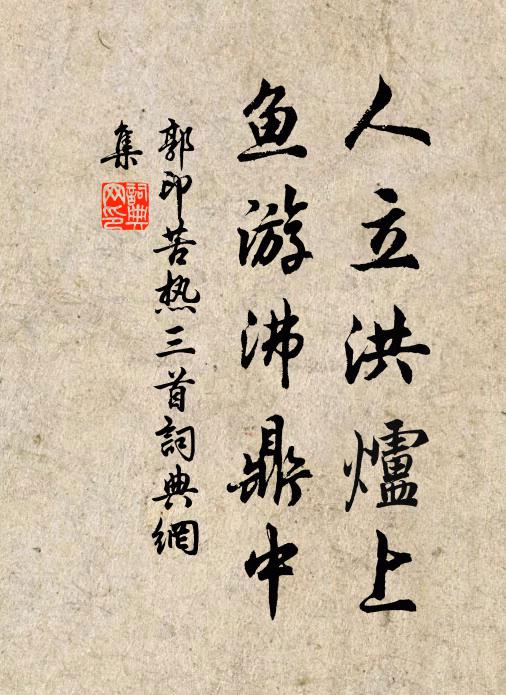 人立洪爐上
鱼游沸鼎中
郭印苦热三首詞典網
集
詞典网印